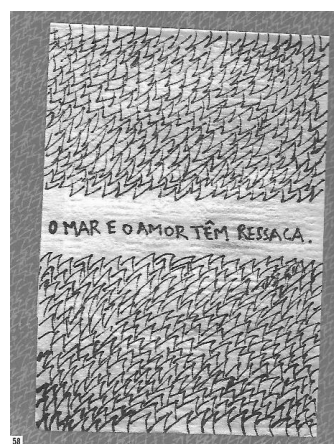 O MAR E O AMOR TÊM RESSACA.
58